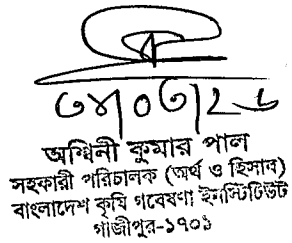 ০৩|০৩|২৬
অশ্বিনী কুমার পাল
সহকারী পরিচালক (অর্থ ও হিসাব)
বাংলাদেশ কৃষি গবেষণা ইনস্টিটিউট
গাজীপুর-১৭০১